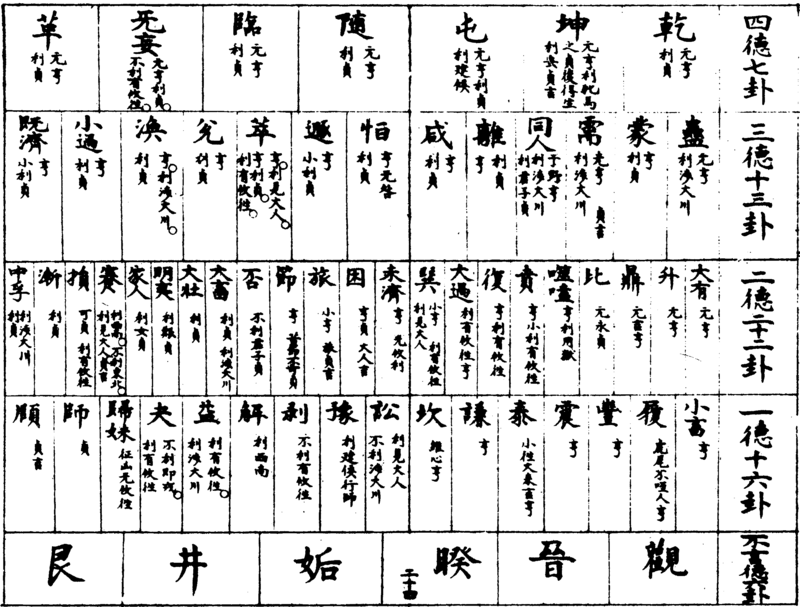 四德七卦
乾
元亨
利貞
坤
元亨利牝馬
之貞後得主
利安貞吉
屯
元亨利貞
利建候
隨
元亨
利貞
臨
元亨
利貞
无妄
元亨利貞
不利有攸往
革
元亨
利貞
三德十三卦
蠱
元亨
利涉大川
蒙
亨
利貞
需
光亨 貞吉
利涉大川
同人
于野亨
利涉大川
利君子貞
離
利貞
亨
咸
亨
利貞
恒
亨无咎
利貞
遯
亨
小利貞
萃
亨利見大人
亨利貞
利有攸往
兌
亨
利貞
渙
亨利涉大川
利貞
小過
亨
利貞
既濟
亨
小利貞
二德二十二卦
大有
元亨
升
元亨
鼎
元吉亨
比
元永貞
噬嗑
亨利用獄
賁
亨小利有攸往
復
亨利有攸往
大過
利有攸往亨
巽
小亨利有攸往
利見大人
未濟
亨无攸利
困
亨貞大人吉
旅
小亨旅貞吉
節
亨苦節不可貞
否
不利君子貞
大畜
利貞利涉大川
大壯
利貞
明夷
利艱貞
家人
利女貞
蹇
利西南不利東北
利見大人貞吉
損
可貞利有攸往
漸
利貞
中孚
利涉大川
利貞
一德十六卦
小畜
亨
履
虎尾不咥人亨
豐
亨
震
亨
泰
小往大來吉亨
謙
亨
坎
維心亨
訟
利見大人
不利涉大川
豫
利建侯行師
剥
不利有攸往
解
利西南
益
利有攸往
利涉大川
夬
不利即戎
利有攸往
歸妹
征凶无攸利
師
貞
頤
貞吉
不言德卦
觀
晉
睽
二十四
姤
井
艮